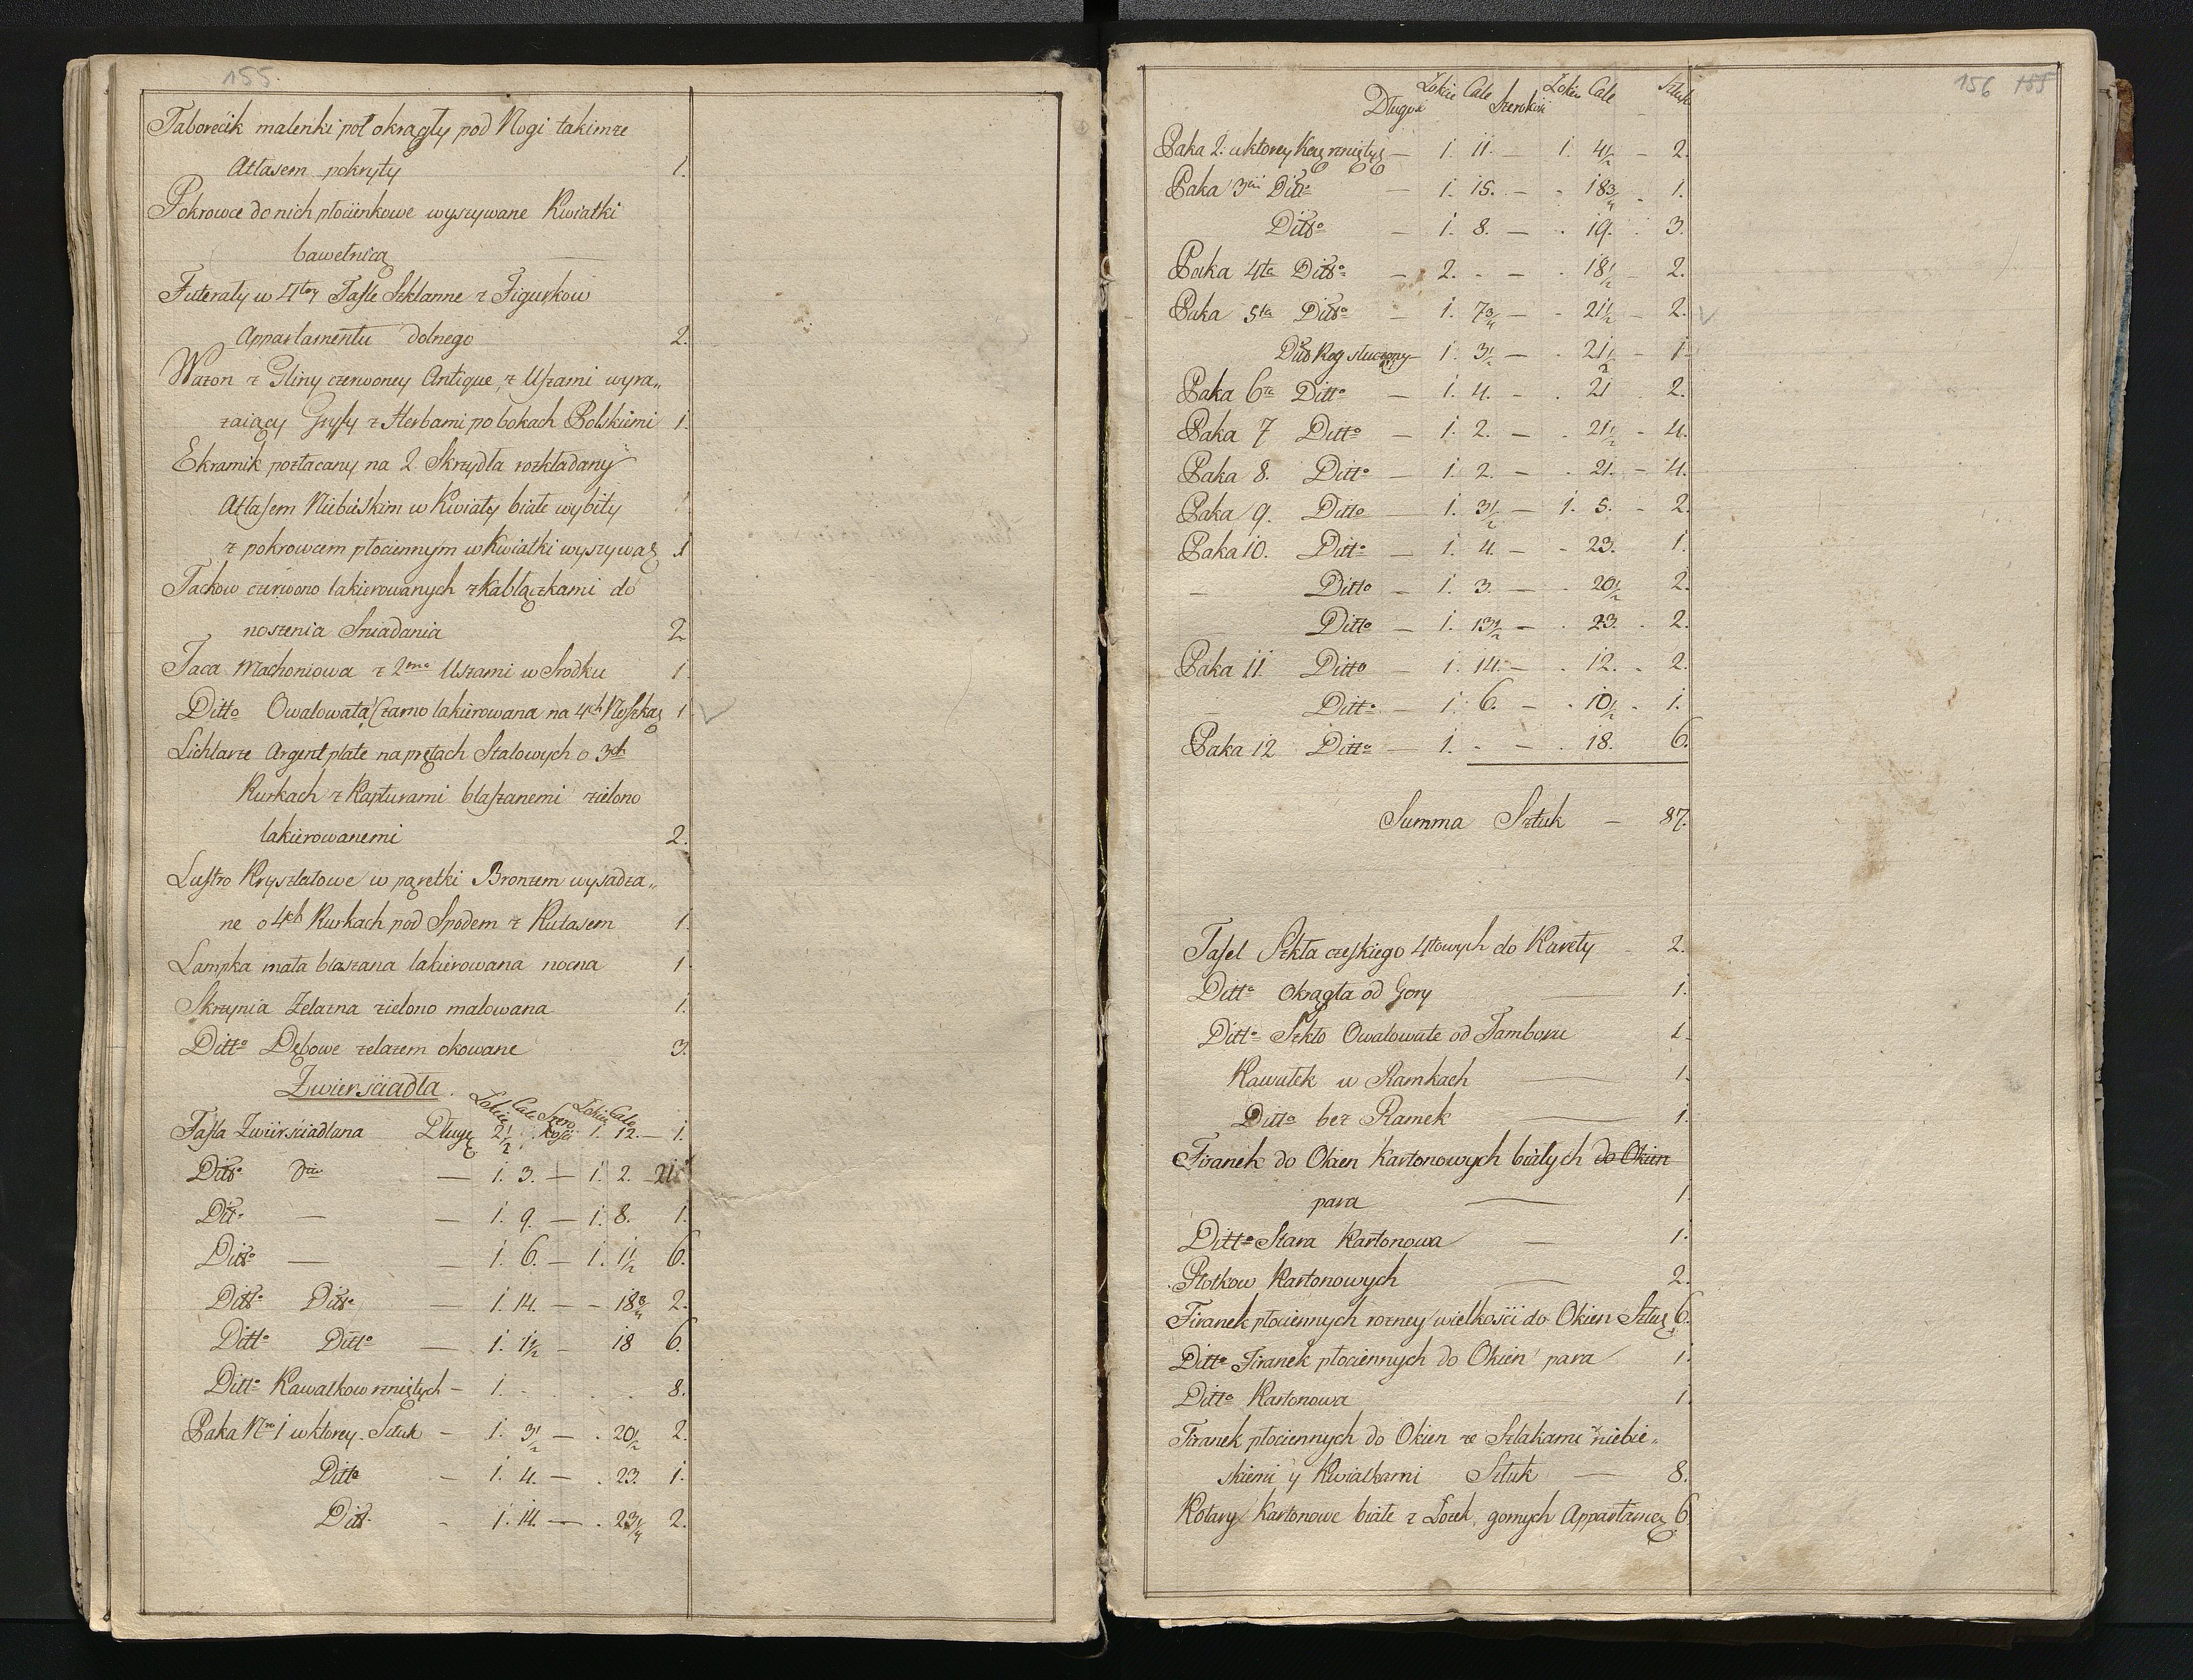 155.
Taborecik malenki poł okrągły pod Nogi takimze
Atłasem pokryty 1.
Pokrowce do nich płocienkowe wyszywane Kwiatki
bawełnicą —
Futerały w 4tey Tafle Szklanne z Figurkow
Appartamentu dolnego 2.
Wazon z Gliny czerwoney Antique, z Uszami wyra„
zaiący Gryfy z Herbami po bokach Polskiemi 1.
Ekramik pozłacany na 2. Skrzydła rozkładany
Atłasem Niebieskim w Kwiaty białe wybity
z pokrowcem płociennym w Kwiatki wyszywa 1
Tackow czerwono lakierowanych z kabłączkami do
noszenia Sniadania 2
Taca Machoniowa z 2ma Uszami w Srodku 1.
Ditto Owalowata Czarno lakierowana na 4ch Noszka 1
Lichtarze Argent plate na prętach Stalowych o 3ch
Rurkach z Kapturami blaszanemi zielono
lakierowanemi 2.
Lustro Krysztalowe w paretki Bronzem wysadza„
ne o 4ch Rurkach pod Spodem z Kutasem 1.
Lampka mała blaszana lakierowana nocna 1.
Skrzynia Zelazna zielono malowana 1.
Ditto Dębowe zelazem okowane 3.
Zwierściadła.
Łokcie Cale Szero Łokcie Cale
Tafla Zwierściadlana Długo 2 1/2 kości 1. 12. — 1.
Ditto Dtto — 1. 3. — 1. 2. — 21.
Ditt — — 1. 9. — 1. 8. 1.
Ditto — — 1. 6. — 1. 1 1/2 6.
Ditto Ditto — 1. 14. — - 18 3/4 2.
Ditto Ditto — 1. 1 1/2 — 18 6.
Ditto Kawałkow rzniętych — 1. - . . . 8.
Paka Nro 1 w ktorey Sztuk — 1. 3 1/2 — . 20 1/2 2.
Ditto — 1. 4. — . 23. 1.
Ditt — 1. 14. — . 23 1/4 2.
156 155
Łokcie Cale Łokcie Cale Sztuk
Długoś Szerokość
Paka 2. w ktorey — 1. 11. — 1. 4 1/2 — 2.
Paka 3cia Ditto — 1. 15. — - 18 3/4 - 1.
Ditto — 1. 8. — . 19. . 3.
Paka 4ta Ditto — 2. - — . 18 1/2 — 2.
Paka 5ta Ditto — 1. 7 3/4 — - 21 1/2 — 2.
Ditto Rog stuczony 1. 3 1/2 — . 21 1/2 — 1.
Paka 6ta Ditto — 1. 4. - . 21 . 2.
Paka 7 Ditto — 1. 2. — . 21 1/2 - 4.
Paka 8. Ditto — 1. 2. — . 21. - 4.
Paka 9. Ditto — 1. 3 1/2 — 1. 5. - 2.
Paka 10. Ditto — 1. 4. — - 23. 1.
— Ditto — 1. 3. — . 20 1/2 2.
Ditto — 1. 13 1/2 — . 23. . 2.
Paka 11. Ditto — 1. 14. — . 12. . 2.
— Ditto — 1. 6. — . 10 1/2 . 1.
Paka 12 Ditto — 1. . — . 18. 6.
Summa Sztuk — 87.
Tafel Szkła czeskiego 4towych do Karety — 2.
Ditto Okrągła od Gory — 1.
Ditto Szkło Owalowate od Tamboru 1.
Kawałek w Ramkach — 1.
Ditto bez Ramek — 1.
Firanek do Okien Kartonowych białych do Okien
para — 1
Ditto Stara Kartonowa — 1.
Płotkow Kartonowych — 2.
Firanek płociennych rozney wielkości do Okien Sztuk 6.
Ditto Firanek płociennych do Okien para 1.
Ditto Kartonowa 1.
Firanek płociennych do Okien ze Szlakami niebie„
skiemi y Kwiatkami Sztuk — 8.
Kotary Kartonowe białe z Łozek gornych Appartame 6.